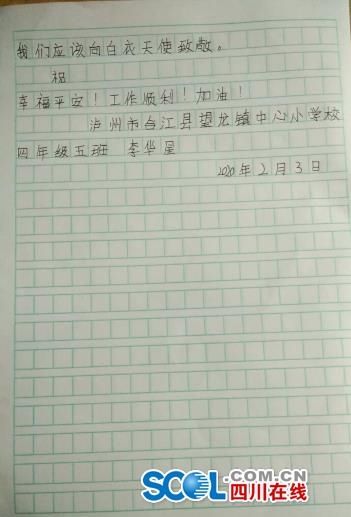 我们应该向白衣天使致敬。
祝
幸福平安!工作顺利!加油!
泸州市合江县望龙镇中心小学校
四年级五班 李华星
2020年2月3日
SCOL.COM.CN
四川在线